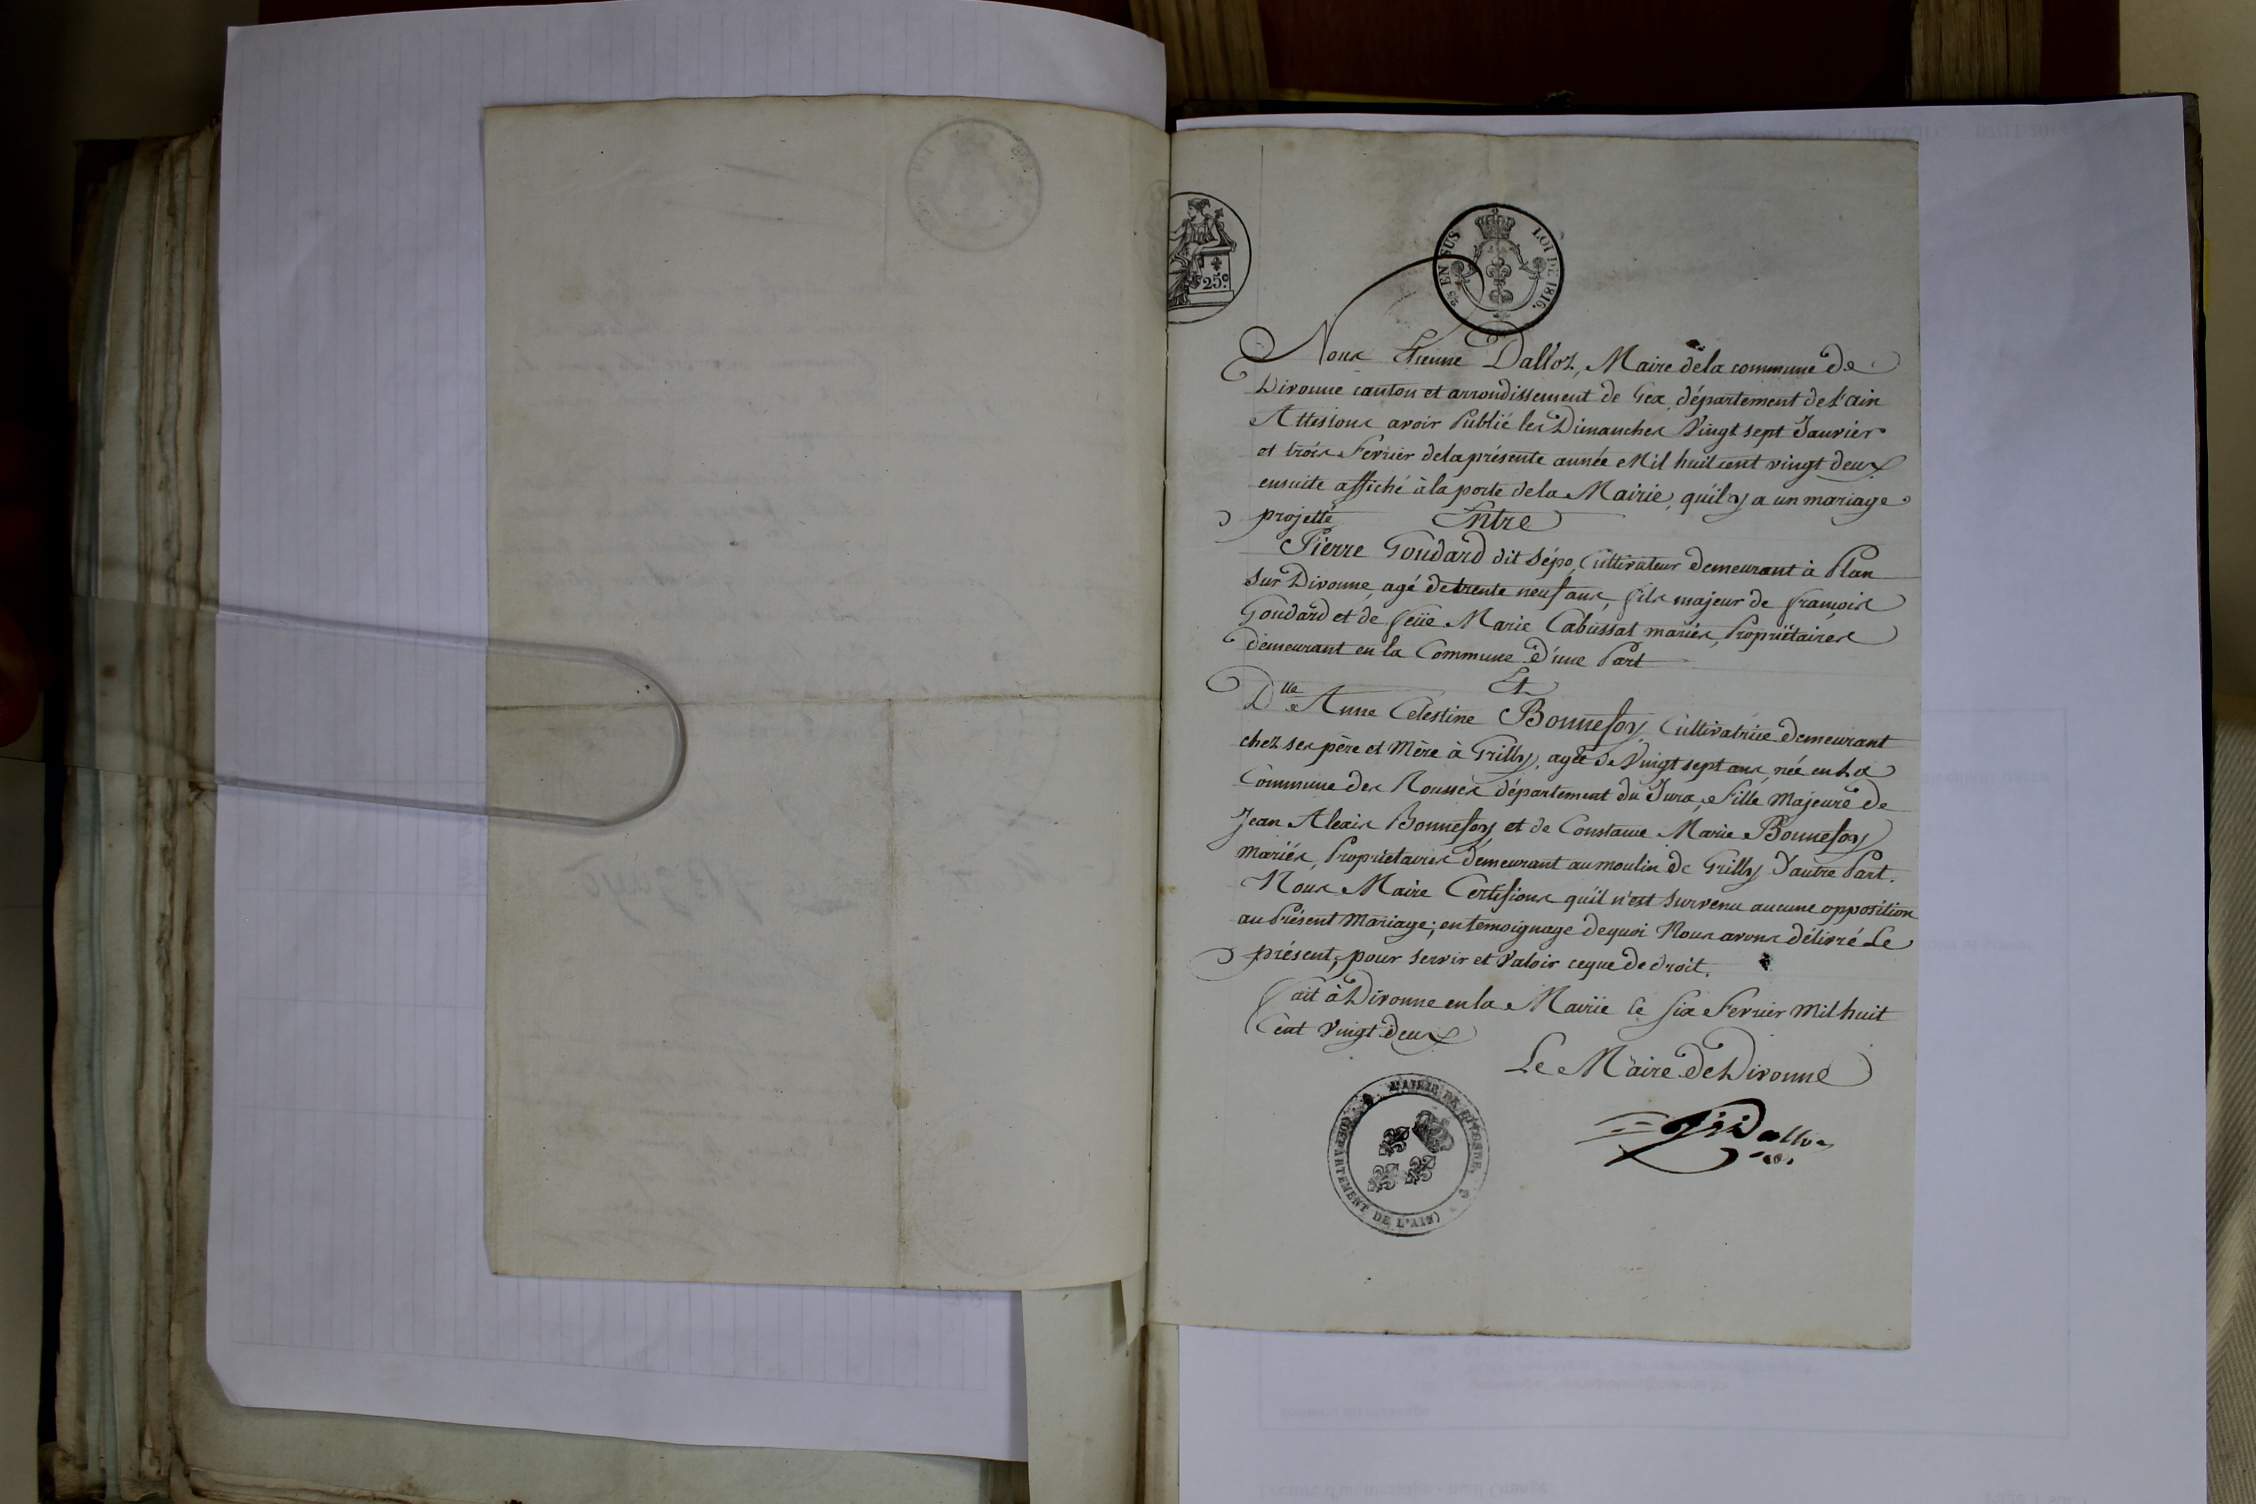 25 EN SUS LOI DE 1816.
25c
Nous Etienne Dalloz, Maire de la commune de
Divonne canton et arrondissement de Gex, département de L'ain
Attestons avoir Publié les Dimanches Vingt sept Janvier
et trois Fevrier de la présente année Mil huit cent vingt deux
ensuite affiché à la porte de la Mairie, qu'il y a un mariage
projetté Entre
Pierre Goudard dit Sépo, Cultivateur demeurant à Plan
sur Divonne, agé de trente neuf ans, fils majeur de françois
Goudard et de feüe Marie Cabussat mariés, Propriétaires
demeurant en la Commune d'une Part
Et
Dlle Anne Celestine Bonnefoy, Cultivatrice demeurant
chez ses père et Mère à Grilly, agée de Vingt sept ans, née en La
Commune des Rousses département du Jura, Fille Majeure de
Jean Alexis Bonnefoy et de Constance Marie Bonnefoy
Mariés, Propriétaires demeurant au moulin de Grilly D'autre Part.
Nous Maire Certifions qu'il n'est survenu aucune opposition
au Présent Mariage; en temoignage de quoi Nous avons délivré Le
présent, pour servir et Valoir ce que de droit.
Fait à Divonne en la Mairie le six Fevrier Mil huit
Cent Vingt deux
Le Maire de Divonne
Dalloz
MAIRIE DE
(DEPARTEMENT DE L'AIN)